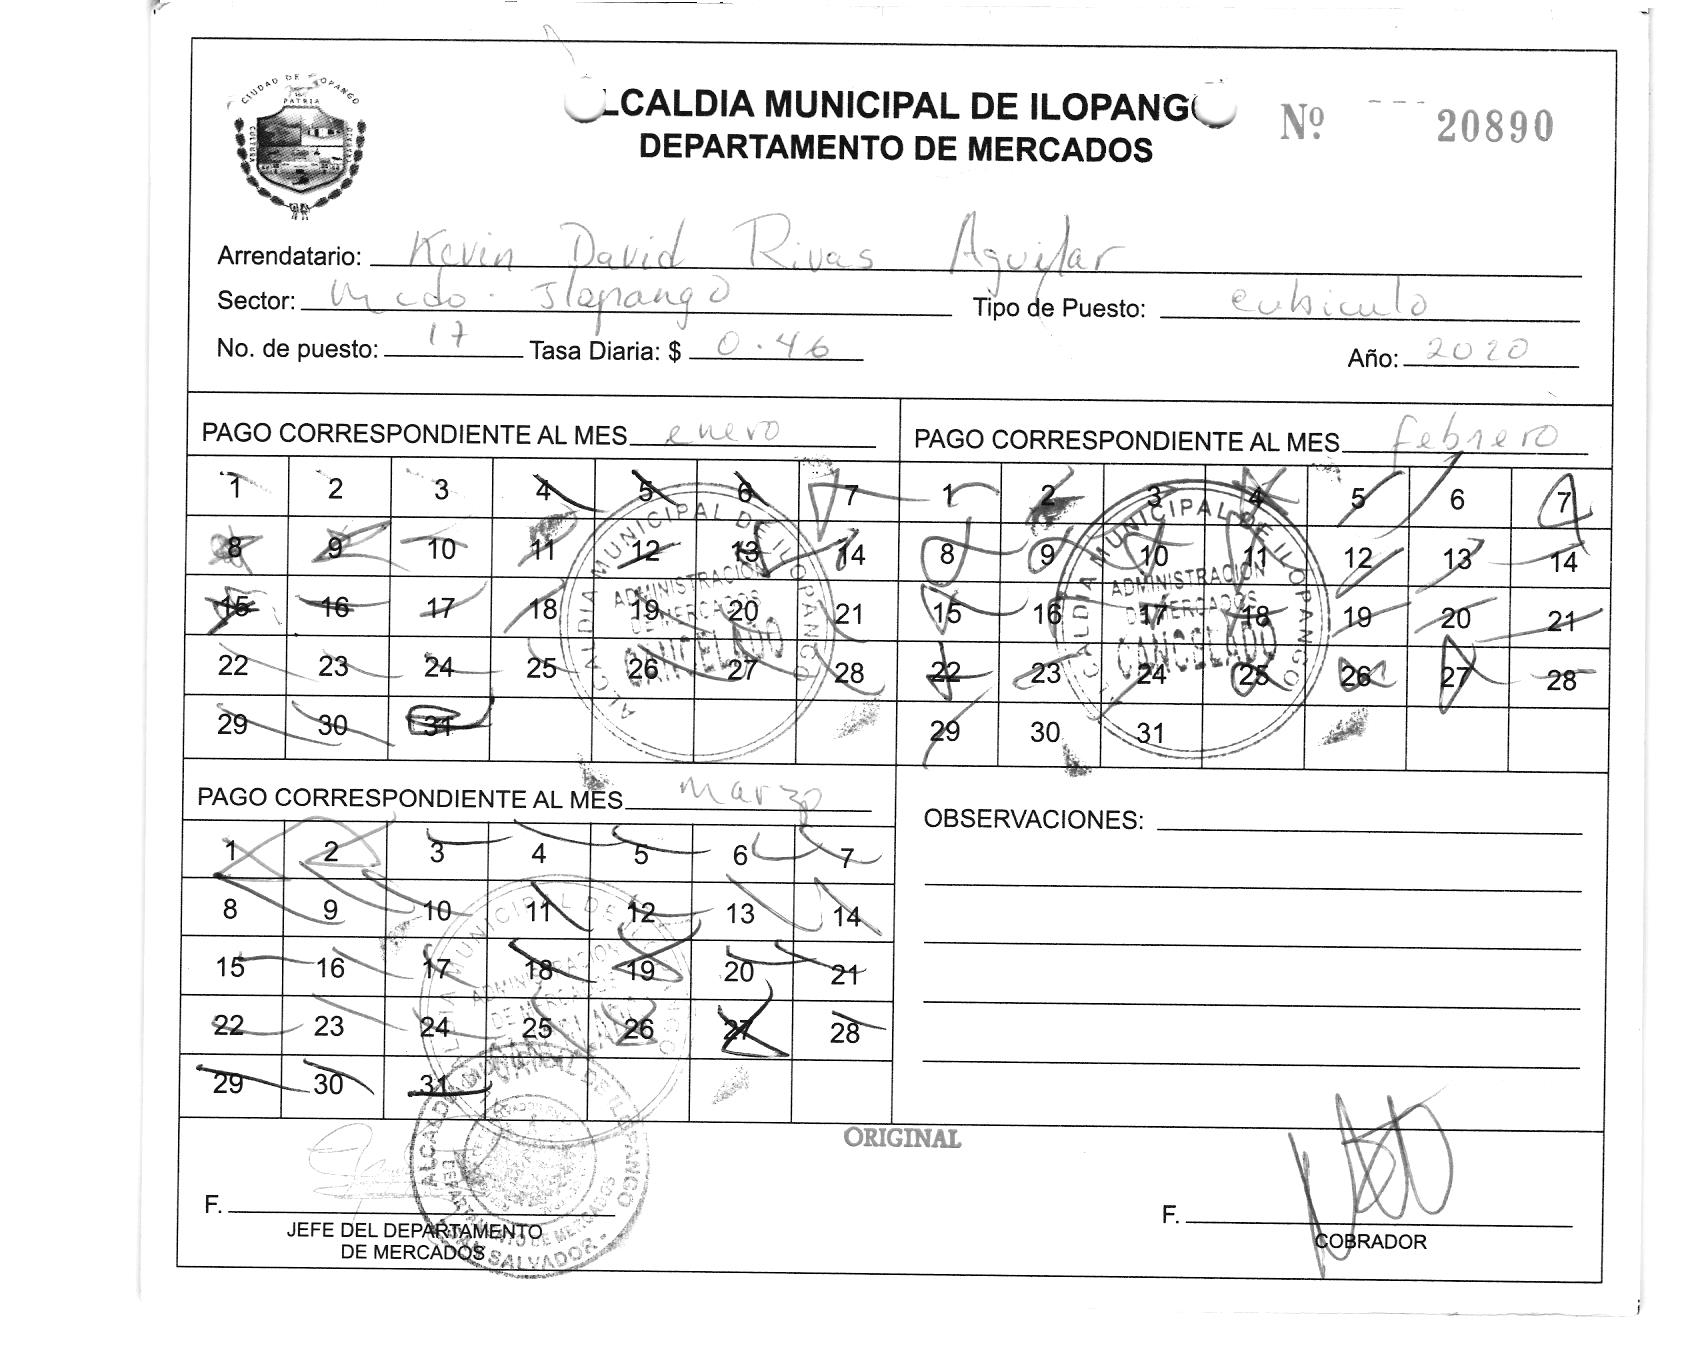 CIUDAD DE ILOPANGO
PATRIA
ALCALDIA MUNICIPAL DE ILOPANGO
DEPARTAMENTO DE MERCADOS
Nº 20890
Arrendatario: Kevin David Rivas Aguilar
Sector: Mcdo. Ilopango Tipo de Puesto: cubiculo
No. de puesto: 17 Tasa Diaria: $ 0.46 Año: 2020
PAGO CORRESPONDIENTE AL MES enero
1 2 3 4 5 6 7
8 9 10 11 12 13 14
15 16 17 18 19 20 21
22 23 24 25 26 27 28
29 30 31
ALCALDIA MUNICIPAL DE ILOPANGO
ADMINISTRACION
DE MERCADOS
CANCELADO
PAGO CORRESPONDIENTE AL MES febrero
1 2 3 4 5 6 7
8 9 10 11 12 13 14
15 16 17 18 19 20 21
22 23 24 25 26 27 28
29 30 31
ALCALDIA MUNICIPAL DE ILOPANGO
ADMINISTRACION
DE MERCADOS
CANCELADO
PAGO CORRESPONDIENTE AL MES marzo
1 2 3 4 5 6 7
8 9 10 11 12 13 14
15 16 17 18 19 20 21
22 23 24 25 26 27 28
29 30 31
ALCALDIA MUNICIPAL DE ILOPANGO
ADMINISTRACION
DE MERCADOS
OBSERVACIONES:
ORIGINAL
F.
JEFE DEL DEPARTAMENTO
DE MERCADOS
ALCALDIA MUNICIPAL DE ILOPANGO
DEPARTAMENTO DE MERCADOS
SALVADOR
F.
COBRADOR